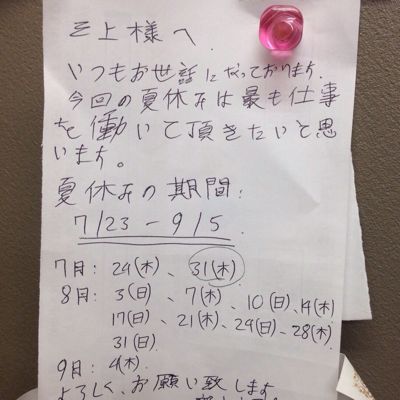 三上様へ.
いつもお世話になっております.
今回の夏休みは最も仕事
を働いて頂きたいと思
います。
夏休みの期間:
7/23 - 9/5
7月: 24(木)、31(木)
8月: 3(日)、7(木)、10(日)、14(木)
17(日)、21(木)、24(日)、28(木)
31(日)
9月: 4(木)
よろしく、お願い致します